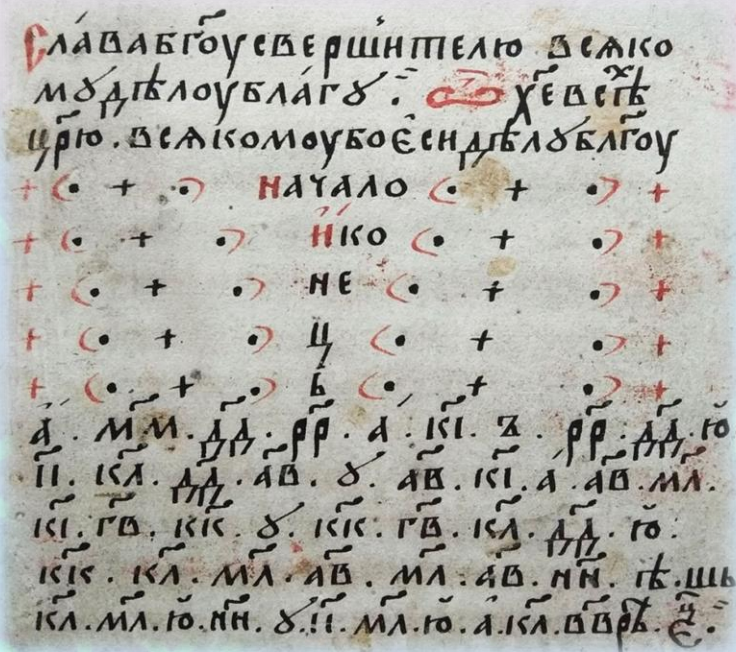 Сла́ва бг҃оу свершӣтелю всѧко
мꙋ дѣлоу бла́гꙋ . хе҃ всѣ̑х
цр҃ю . всѧкомоу бо є҆си дѣлꙋ бл҃гоу
+ ( • + • ) начало ( • + • ) +
+ ( • + • ) и҆ ко ( • + • ) +
+ ( • + • ) не ( • + • ) +
+ ( • + • ) ц ( • + • ) +
+ ( • + • ) ь ( • + • ) +
а҃ . м҃м . д҃д . р҃р . а . к҃і . ꙁ . р҃р . д҃д . ю҆
і҃і . к҃л . д҃д . а҃в . ꙋ . а҃в . к҃і . а . а҃в . м҃л .
к҃і . г҃в . к҃к . ꙋ . к҃к . г҃в . к҃л . д҃д . ю҆ .
к҃к . к҃л . м҃л . а҃в . м҃л . а҃в . н҃н . гѣ . шь
к҃л . м҃л . ю҆ . н҃н . ꙋ . і҃і . м҃л . ю҆ . а . к҃л . в҃в